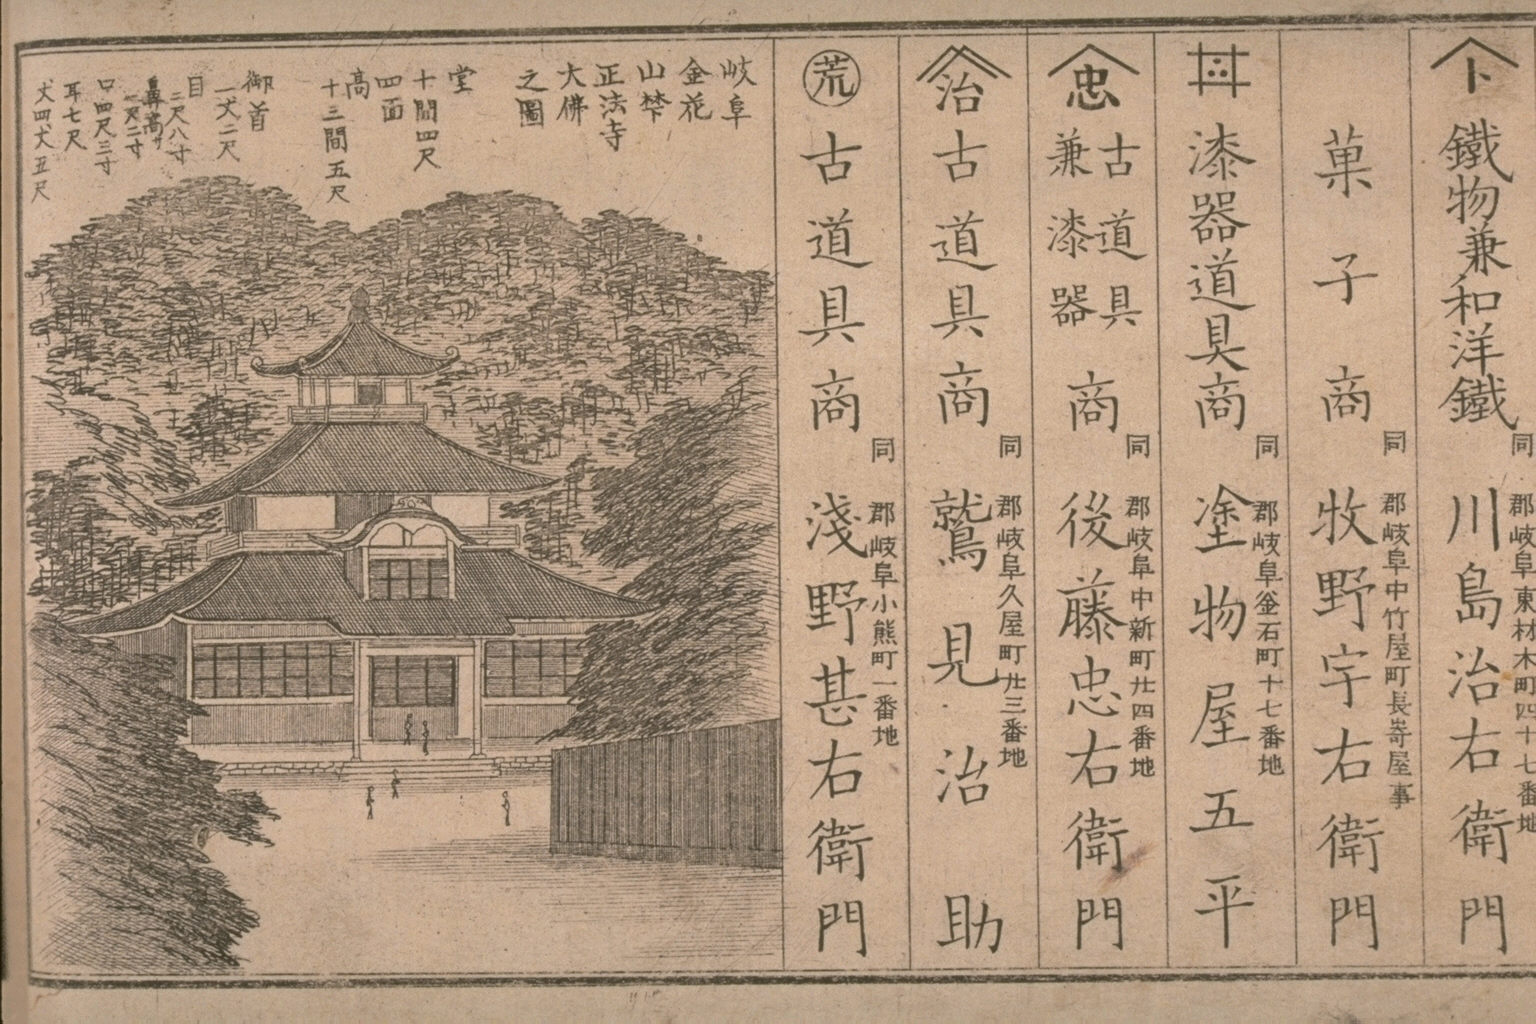 卜
鐵物兼和洋鐵
同郡岐阜東材木町四十七番地
川島治右衛門
菓子商
同郡岐阜中竹屋町長嵜屋事
牧野宇右衛門
漆器道具商
同郡岐阜釜石町十七番地
塗物屋五平
忠
古道具
兼漆器
商
同郡岐阜中新町廿四番地
後藤忠右衛門
治
古道具商
同郡岐阜久屋町廿三番地
鷲見治助
荒
古道具商
同郡岐阜小熊町一番地
淺野甚右衛門
岐阜
金花
山禁
正法寺
大佛
之圖
堂
十間四尺
四面
高
十三間五尺
御首
一丈二尺
目
二尺八寸
鼻高サ
一尺二寸
口四尺三寸
耳七尺
丈四丈五尺